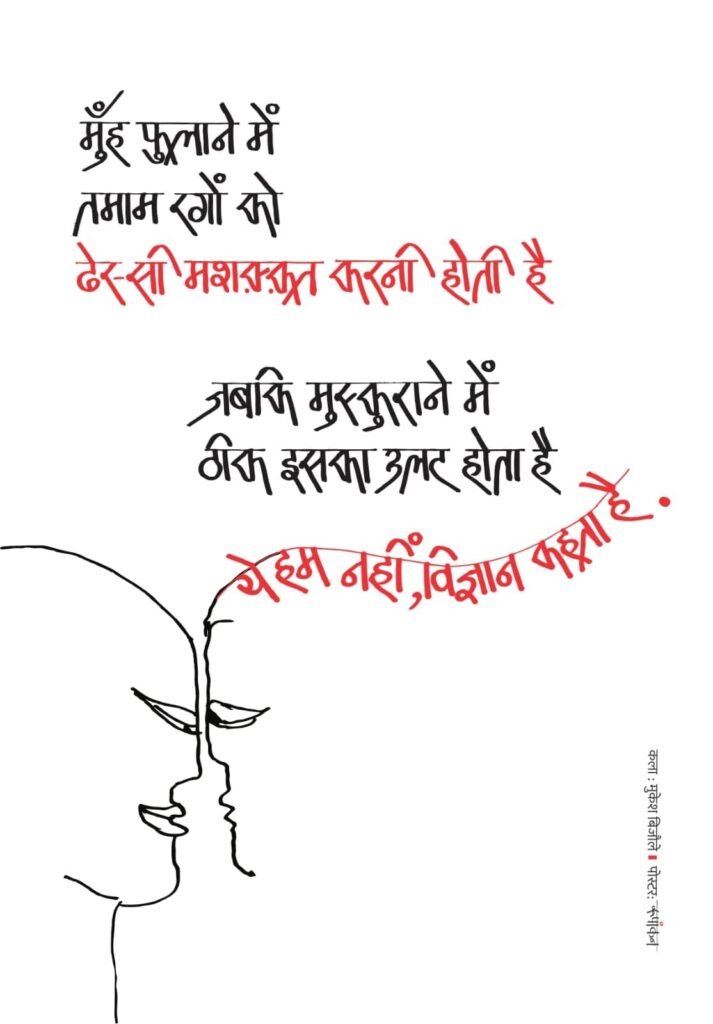 मुँह फुलाने में
तमाम रगों को
ढेर-सी मशक़्क़त करनी होती है
जबकि मुस्कुराने में
ठीक इसका उलट होता है
ये हम नहीं, विज्ञान कहता है.
कला : मुकेश बिजौले ▮ पोस्टर: रूपांकन